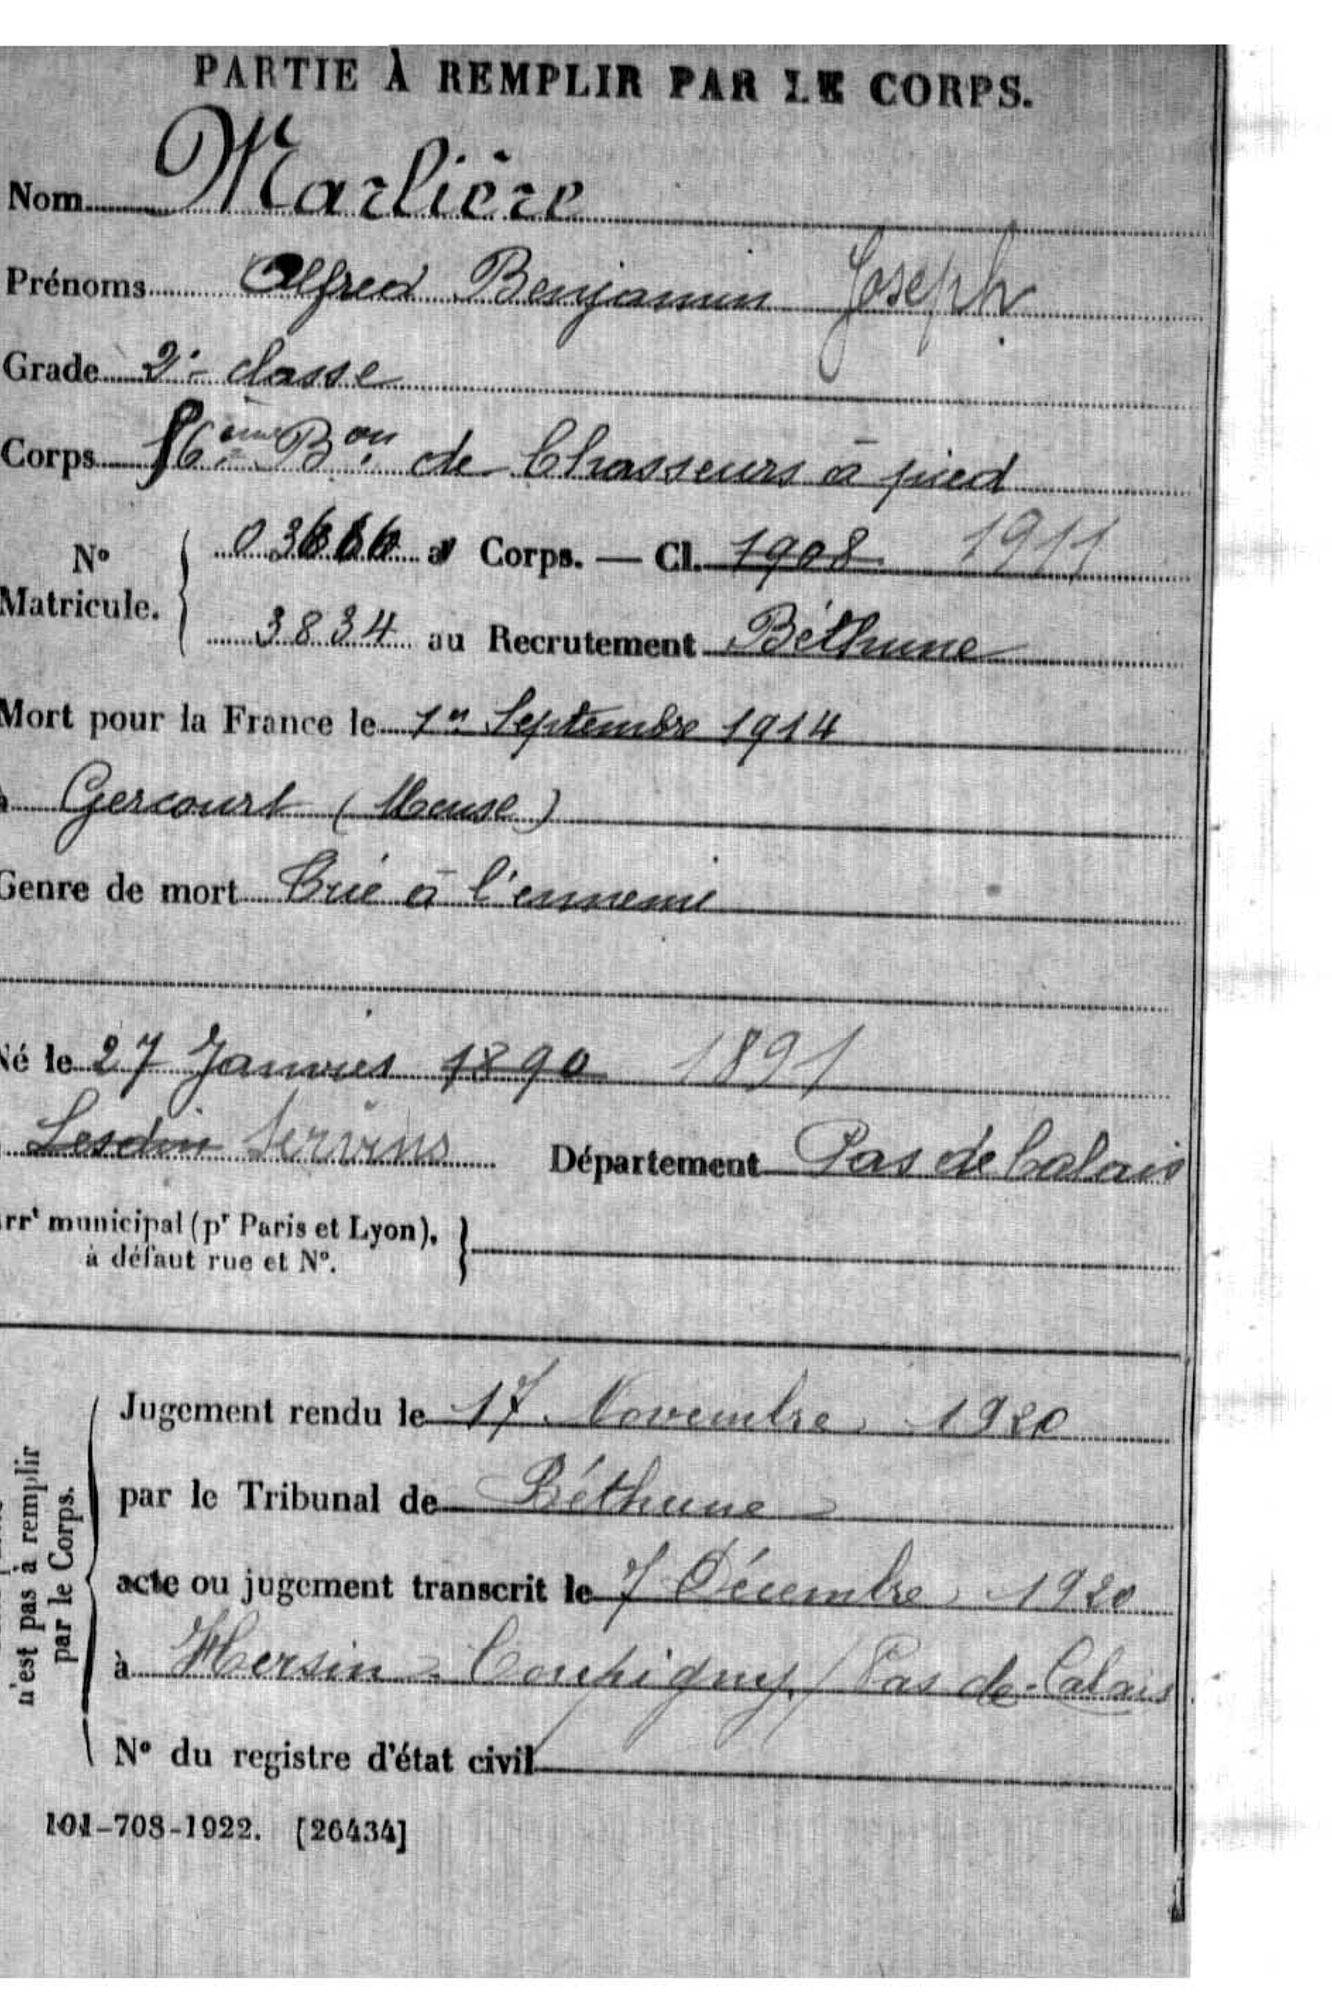 PARTIE À REMPLIR PAR LE CORPS.
Nom Marlière
Prénoms Alfred Benjamin Joseph
Grade 2e classe
Corps 16ème Bon de Chasseurs à pied
N° Matricule. 03666 au Corps. — Cl. 1908 1911
3834 au Recrutement Béthune
Mort pour la France le 1er Septembre 1914
à Gercourt (Meuse)
Genre de mort Tué à l'ennemi
Né le 27 Janvier 1890 1891
Lesdin Servins Département Pas de Calais
arrt municipal (pr Paris et Lyon),
à défaut rue et N°.
n'est pas à remplir
par le Corps.
Jugement rendu le 17 Novembre 1920
par le Tribunal de Béthune
acte ou jugement transcrit le 7 Décembre 1920
à Hersin-Coupigny / Pas de-Calais
N° du registre d'état civil
101-708-1922. [26434]